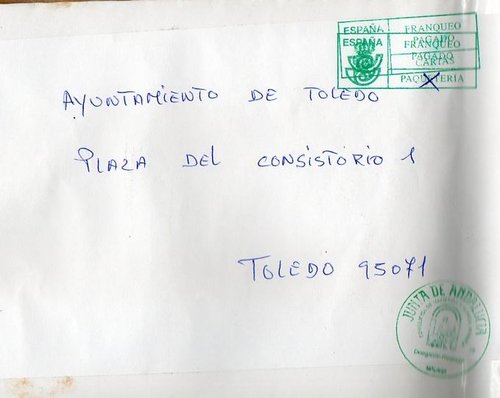 ESPAÑA FRANQUEO
PAGADO
ESPAÑA FRANQUEO
PAGADO
CARTAS
PAQUETERIA
AYUNTAMIENTO DE TOLEDO
PLAZA DEL CONSISTORIO 1
TOLEDO 95071
JUNTA DE ANDALUCIA